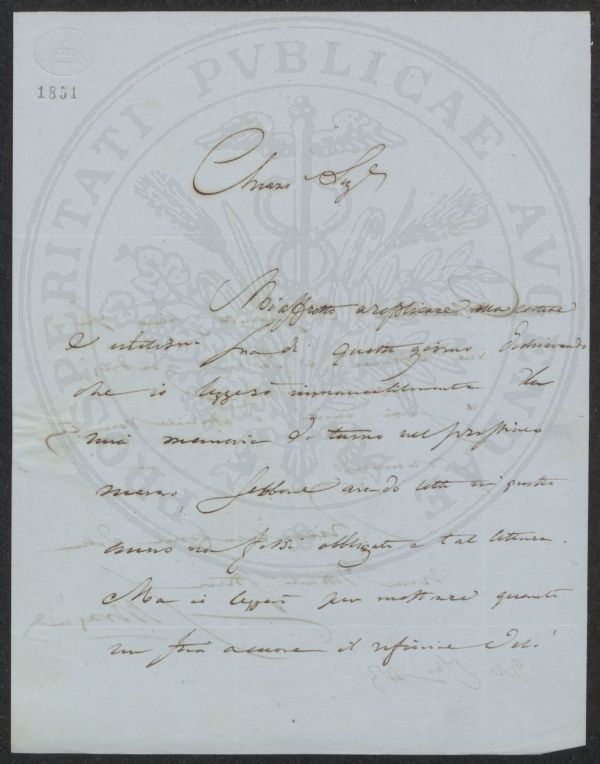 1851
PROSPERITATI PVBLICAE AVGENDAE
Chiaro Sigre
Mi affretto a replicare alla cortese
ed Sua di questo giorno dichiarando
che io leggerò immancabilmente la
mia memoria di turno nel prossimo
marzo, sebbene avendo letto in questo
anno non fossi obbligato a tal lettura.
Ma io leggerò per mostrare quanto
mi sia a cuore il